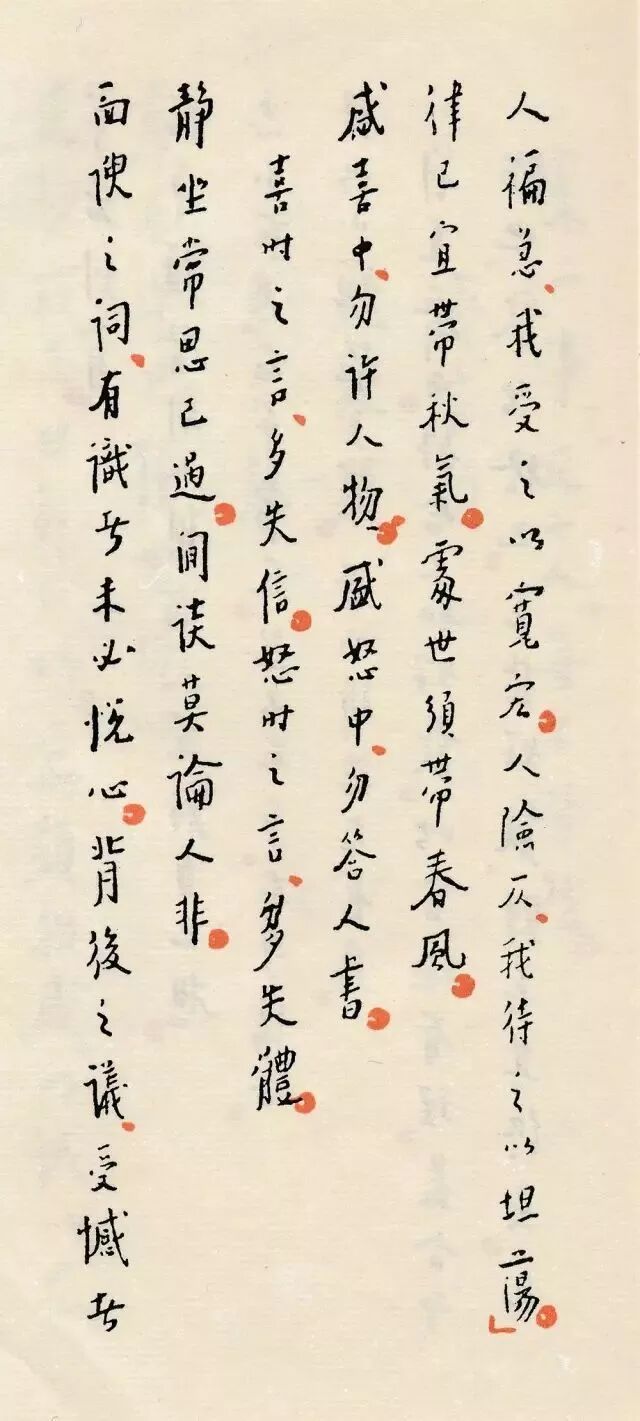 人褊急、我受之以寬宏。人險仄、我待之以坦蕩。」
律己宜帶秋氣。處世須帶春風。
盛喜中、勿許人物。盛怒中、勿答人書。
喜時之言、多失信。怒時之言、多失體。
靜坐常思己過。閒談莫論人非。
面諛之詞、有識者未必悅心。背後之議、受憾者